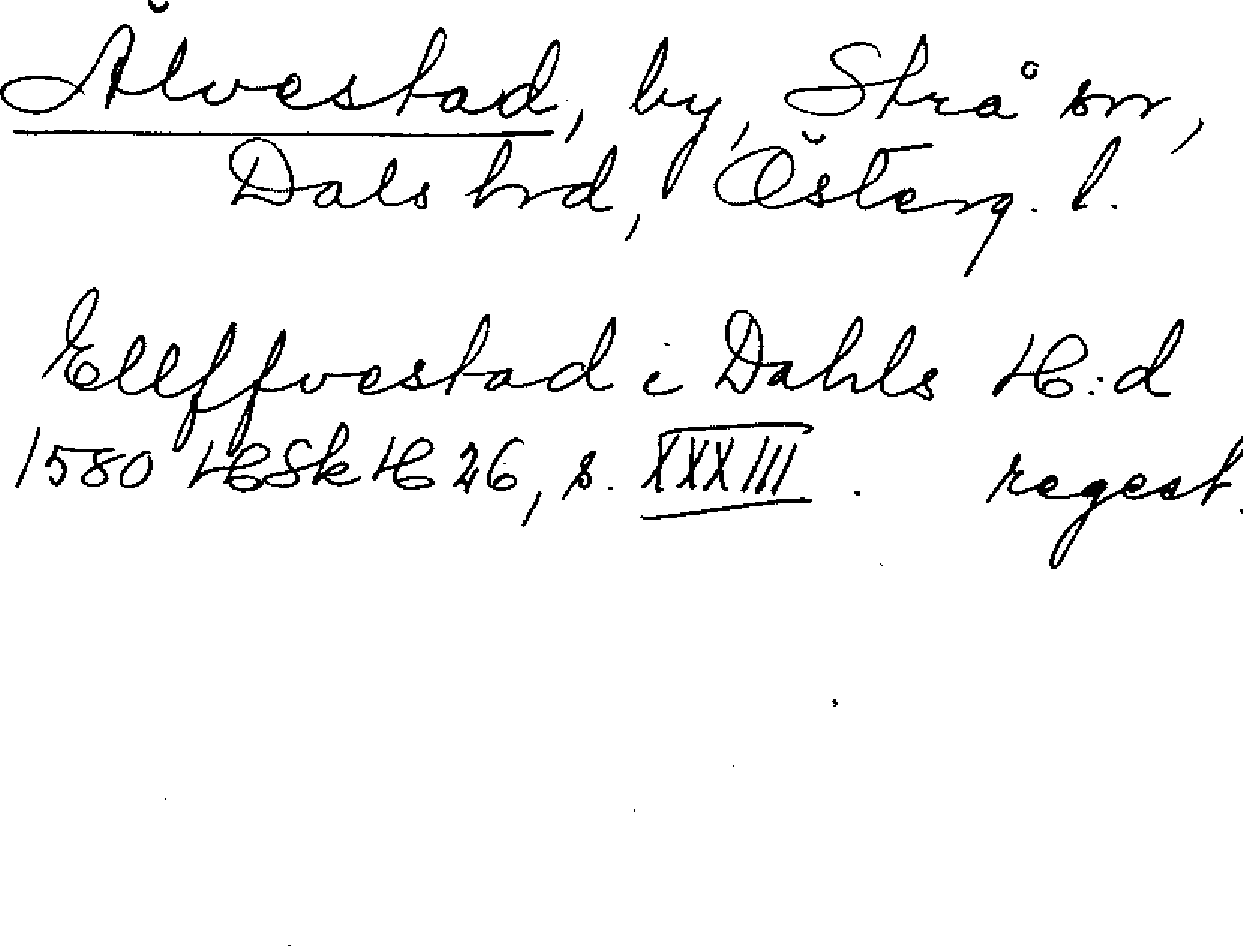 Älvestad, by, Strå sn,
Dals hrd, Österg. l.
Ellffvestad i Dahls H:d
1580 HSkH 26, s. XXXIII. regest.